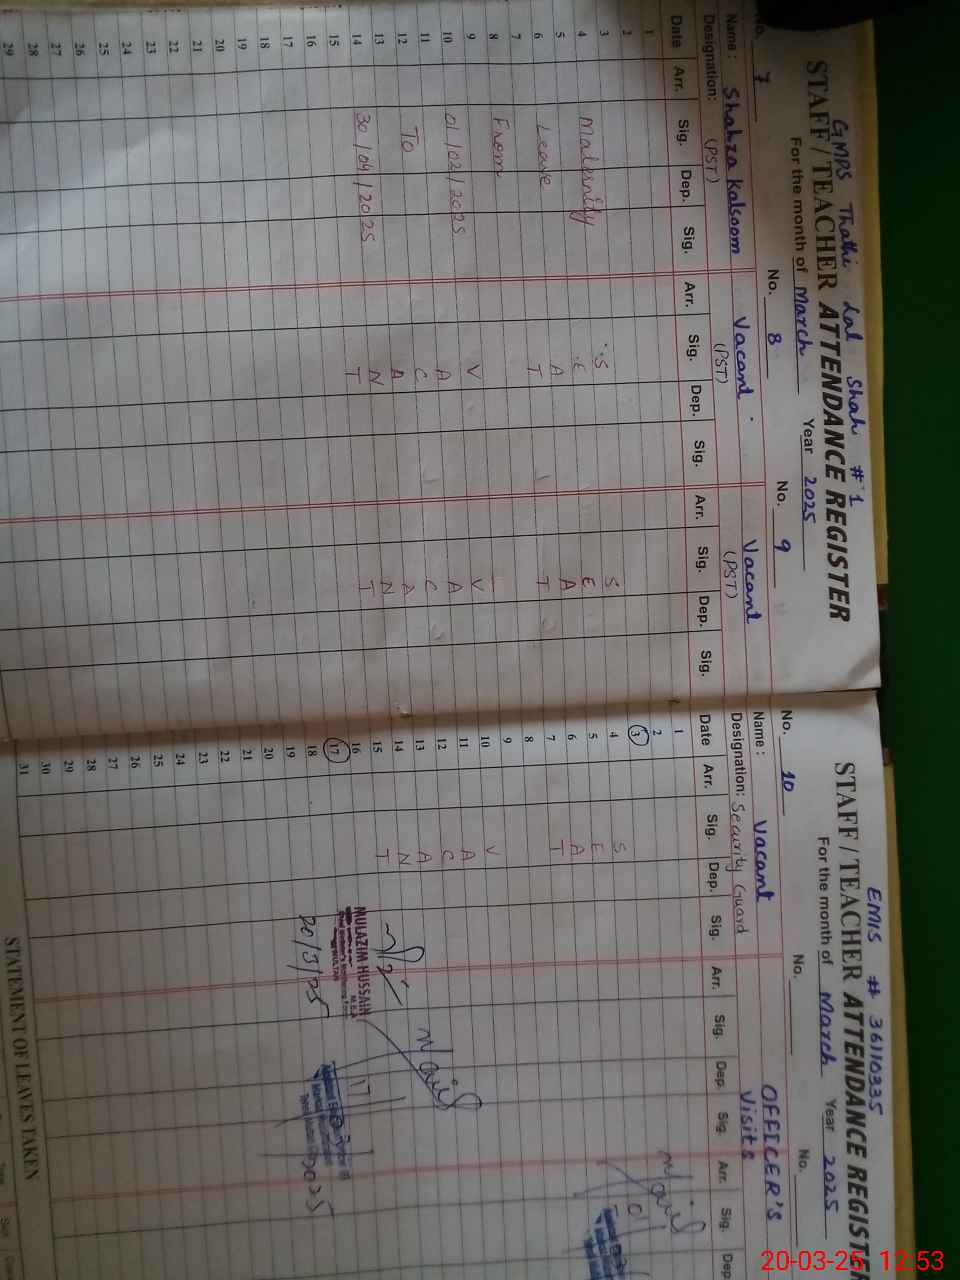 GMPS Thathi Lal Shah # 1
STAFF / TEACHER ATTENDANCE REGISTER
For the month of March Year 2025
No. 7 No. 8 No. 9
Name: Shahza Kalsoom Vacant. Vacant
Designation: (PST) (PST) (PST)
Date Arr. Sig. Dep. Sig. Arr. Sig. Dep. Sig. Arr. Sig. Dep. Sig.
1
2
3 S S
4 Maternity E E
5 A A
6 Leave T T
7
8 From
9 V V
10 01/02/2025 A A
11 C C
12 To A A
13 N N
14 30/04/2025 T T
15
16
17
18
19
20
21
22
23
24
25
26
27
28
29
EMIS # 36110335
STAFF / TEACHER ATTENDANCE REGISTER
For the month of March Year 2025
No. 10 No. No.
Name: Vacant OFFICER'S
Designation: Security Guard Visits
Date Arr. Sig. Dep. Sig. Arr. Sig. Dep. Sig. Arr. Sig. Dep.
1
2
3
4 S
5 E
6 A
7 T
8
9
10 V
11 A
12 C
13 A
14 N
15 T
16 MULAZIM HUSSAIN
17
18 20/3/25
19
20
21
22
23
24
25
26
27
28
29
30
31
STATEMENT OF LEAVES TAKEN
20-03-25 12:53